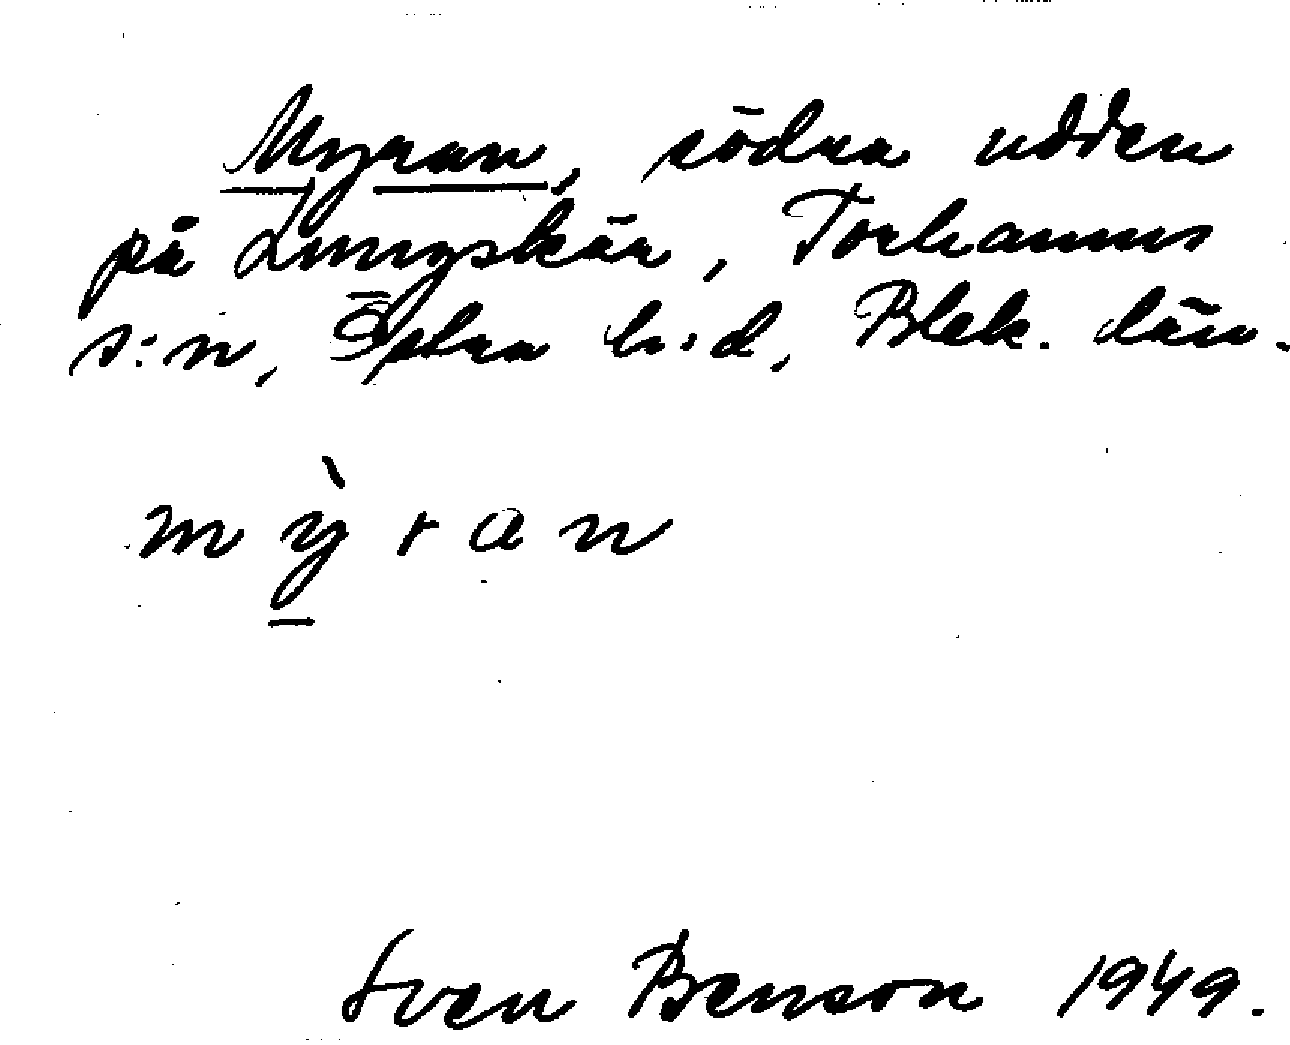 Myran, södra udden
på Långskär, Torhamns
s:n, Östra h:d, Blek. län.
m ỳ r a n
Sven Benson 1949.